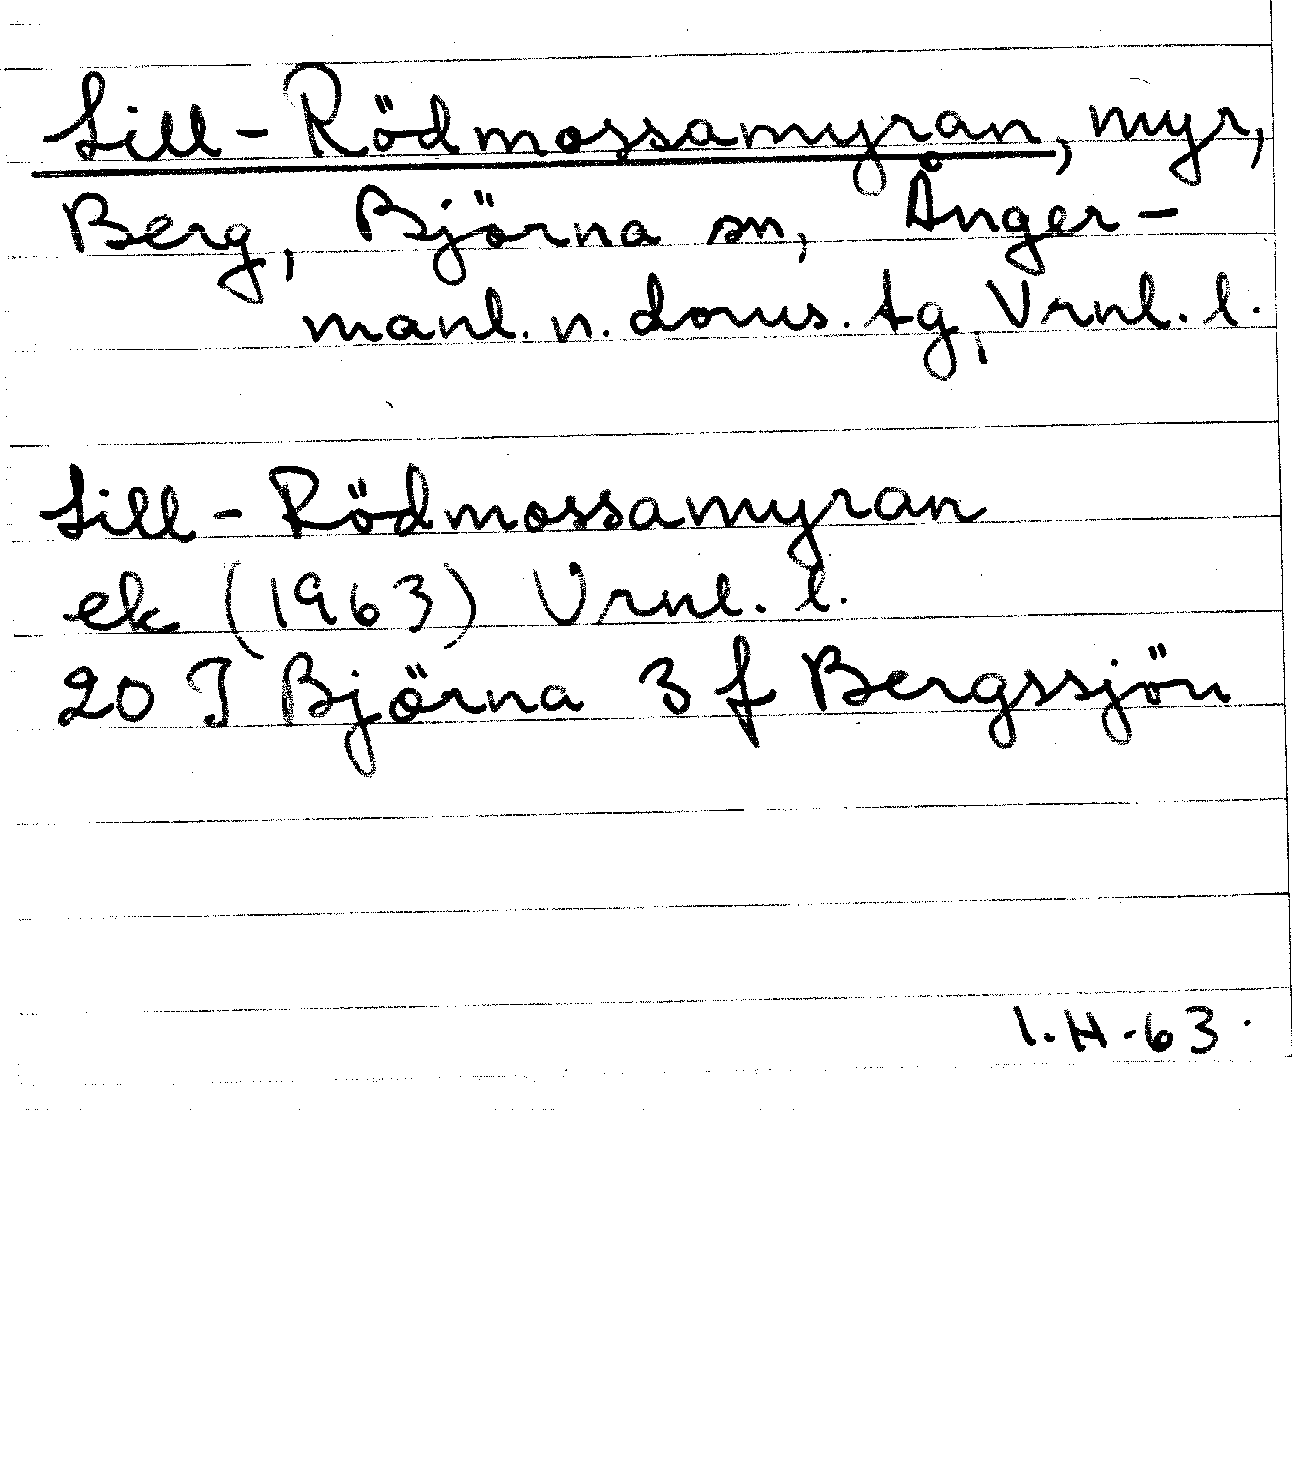 Lill-Rödmossamyran, myr,
Berg, Björna sn, Ånger-
manl. n. doms. tg, Vrnl. l.
Lill-Rödmossamyran
ek (1963) Vrnl. l.
20 I Björna 3 f Bergssjön
I.H-63.